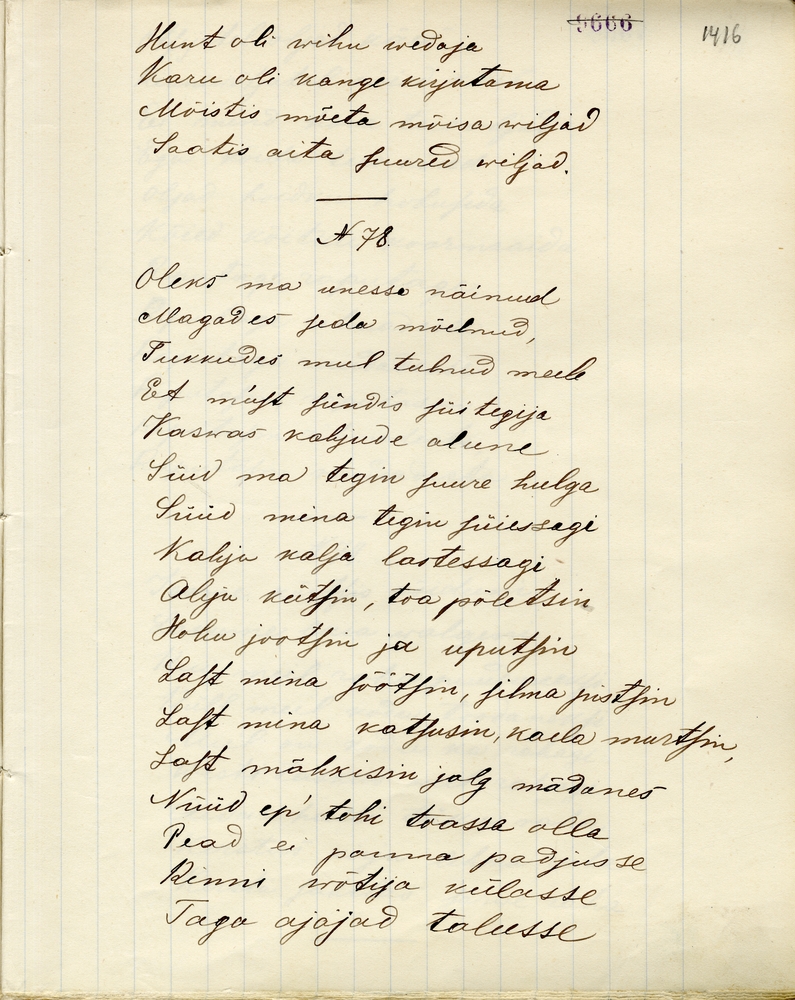 9666
1416
Hunt oli wihu wedaja
Karu oli kange kirjutama
Mõistis mõeta mõisa wiljad
Saatis aita suured wiljad.
N 78.
Oleks ma unessa näinud
Magades seda mõelnud,
Tukkudes mul tulnud meele
Et must sündis süitegija
Kaswas kahjude alune
Süid ma tegin suure hulga
Süüd mina tegin süiessagi
Kahju kalja lastessagi
Ahju kütsin, toa põletsin
Hobu jootsin ja uputsin
Last mina söötsin, silma pistsin
Last mina katsusin, kaela murtsin,
Last mähkisin jalg mädanes
Nüüd ep' tohi toassa olla
Pead ei panna padjusse
Kinni wõtija külasse
Taga ajajad talusse